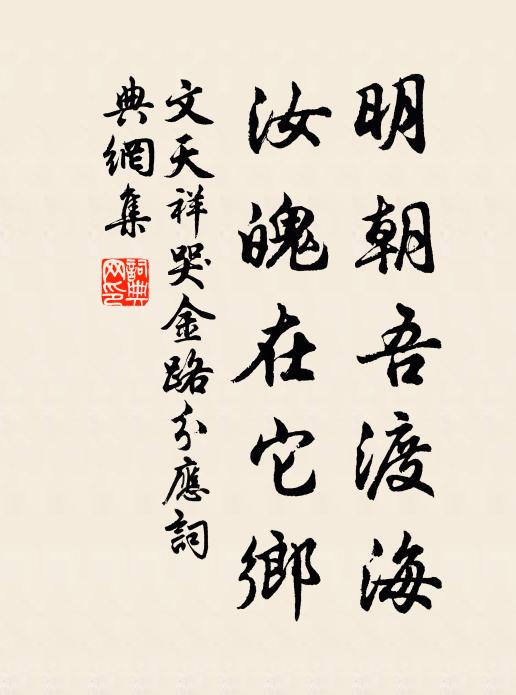 明朝吾渡海
汝魄在它鄉
文天祥哭金路分應詞
典網集
詞典
网印